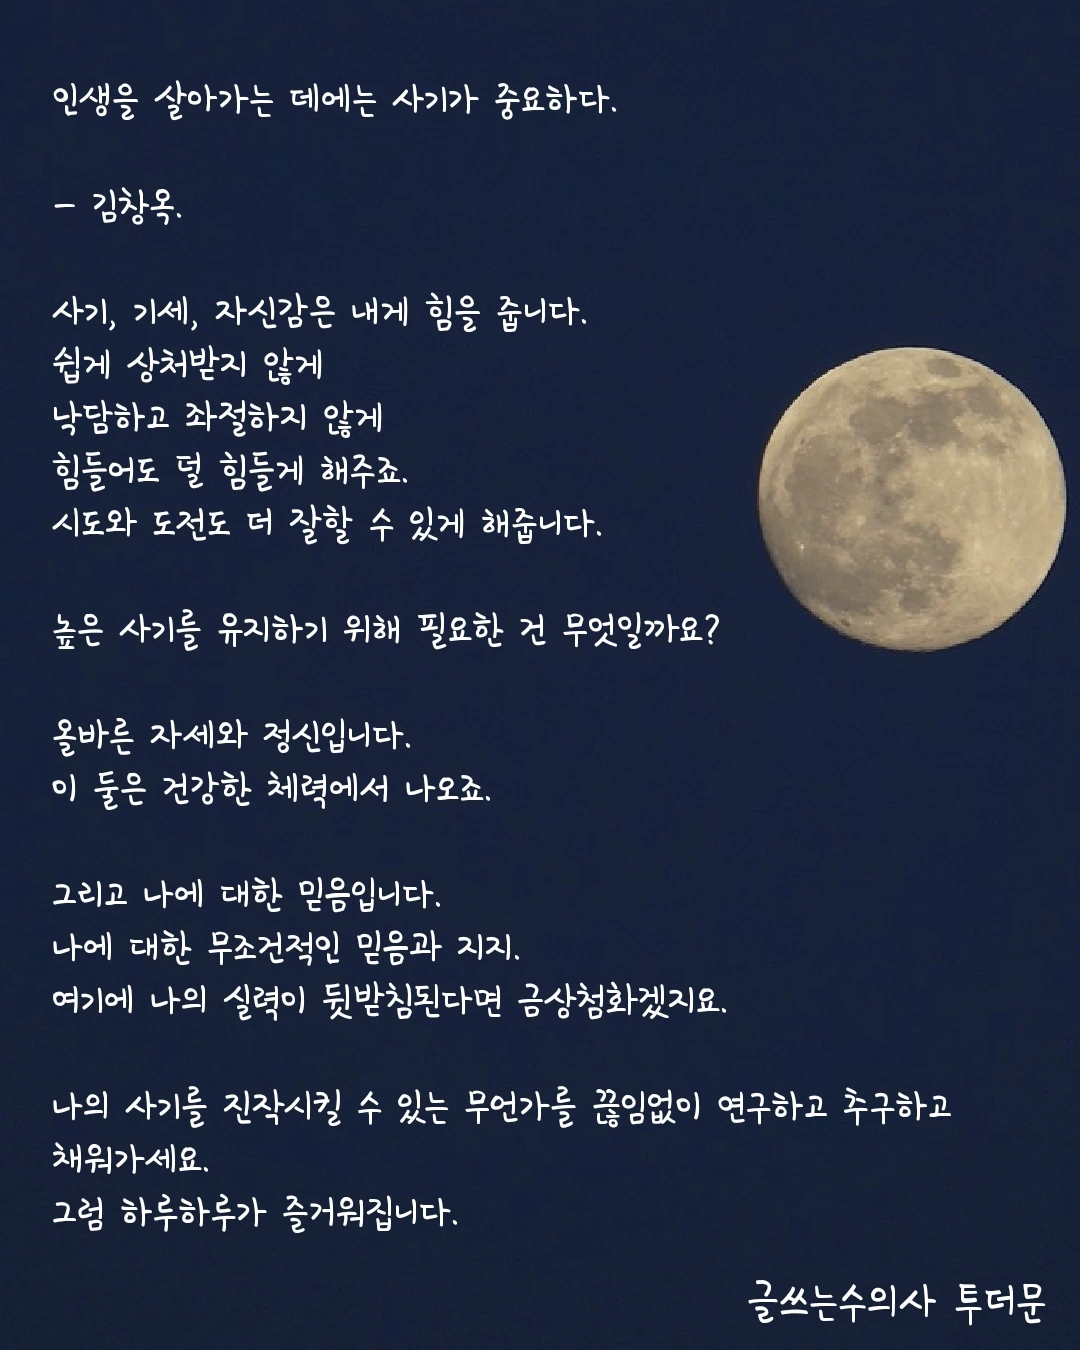 인생을 살아가는 데에는 사기가 중요하다.
- 김창옥.
사기, 기세, 자신감은 내게 힘을 줍니다.
쉽게 상처받지 않게
낙담하고 좌절하지 않게
힘들어도 덜 힘들게 해주죠.
시도와 도전도 더 잘할 수 있게 해줍니다.
높은 사기를 유지하기 위해 필요한 건 무엇일까요?
올바른 자세와 정신입니다.
이 둘은 건강한 체력에서 나오죠.
그리고 나에 대한 믿음입니다.
나에 대한 무조건적인 믿음과 지지.
여기에 나의 실력이 뒷받침된다면 금상첨화겠지요.
나의 사기를 진작시킬 수 있는 무언가를 끊임없이 연구하고 추구하고
채워가세요.
그럼 하루하루가 즐거워집니다.
글쓰는수의사 투더문